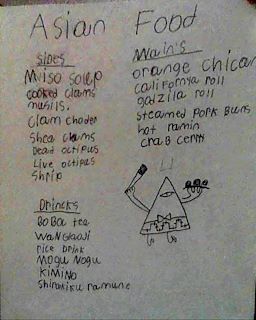 Asian Food
sides
Miso soup
cooked clams
musils.
clam choder
Shea clams
Dead octipus
Live octipus
Shrip
Drincks
BoBa tea
WaNGlaoJi
rice Drink
MoGu NoGu
KiMiNo
Shirakiku ramune
Main's
orange chican
califomya roll
godzilla roll
steamed Pork Buns
hot ramin
crab